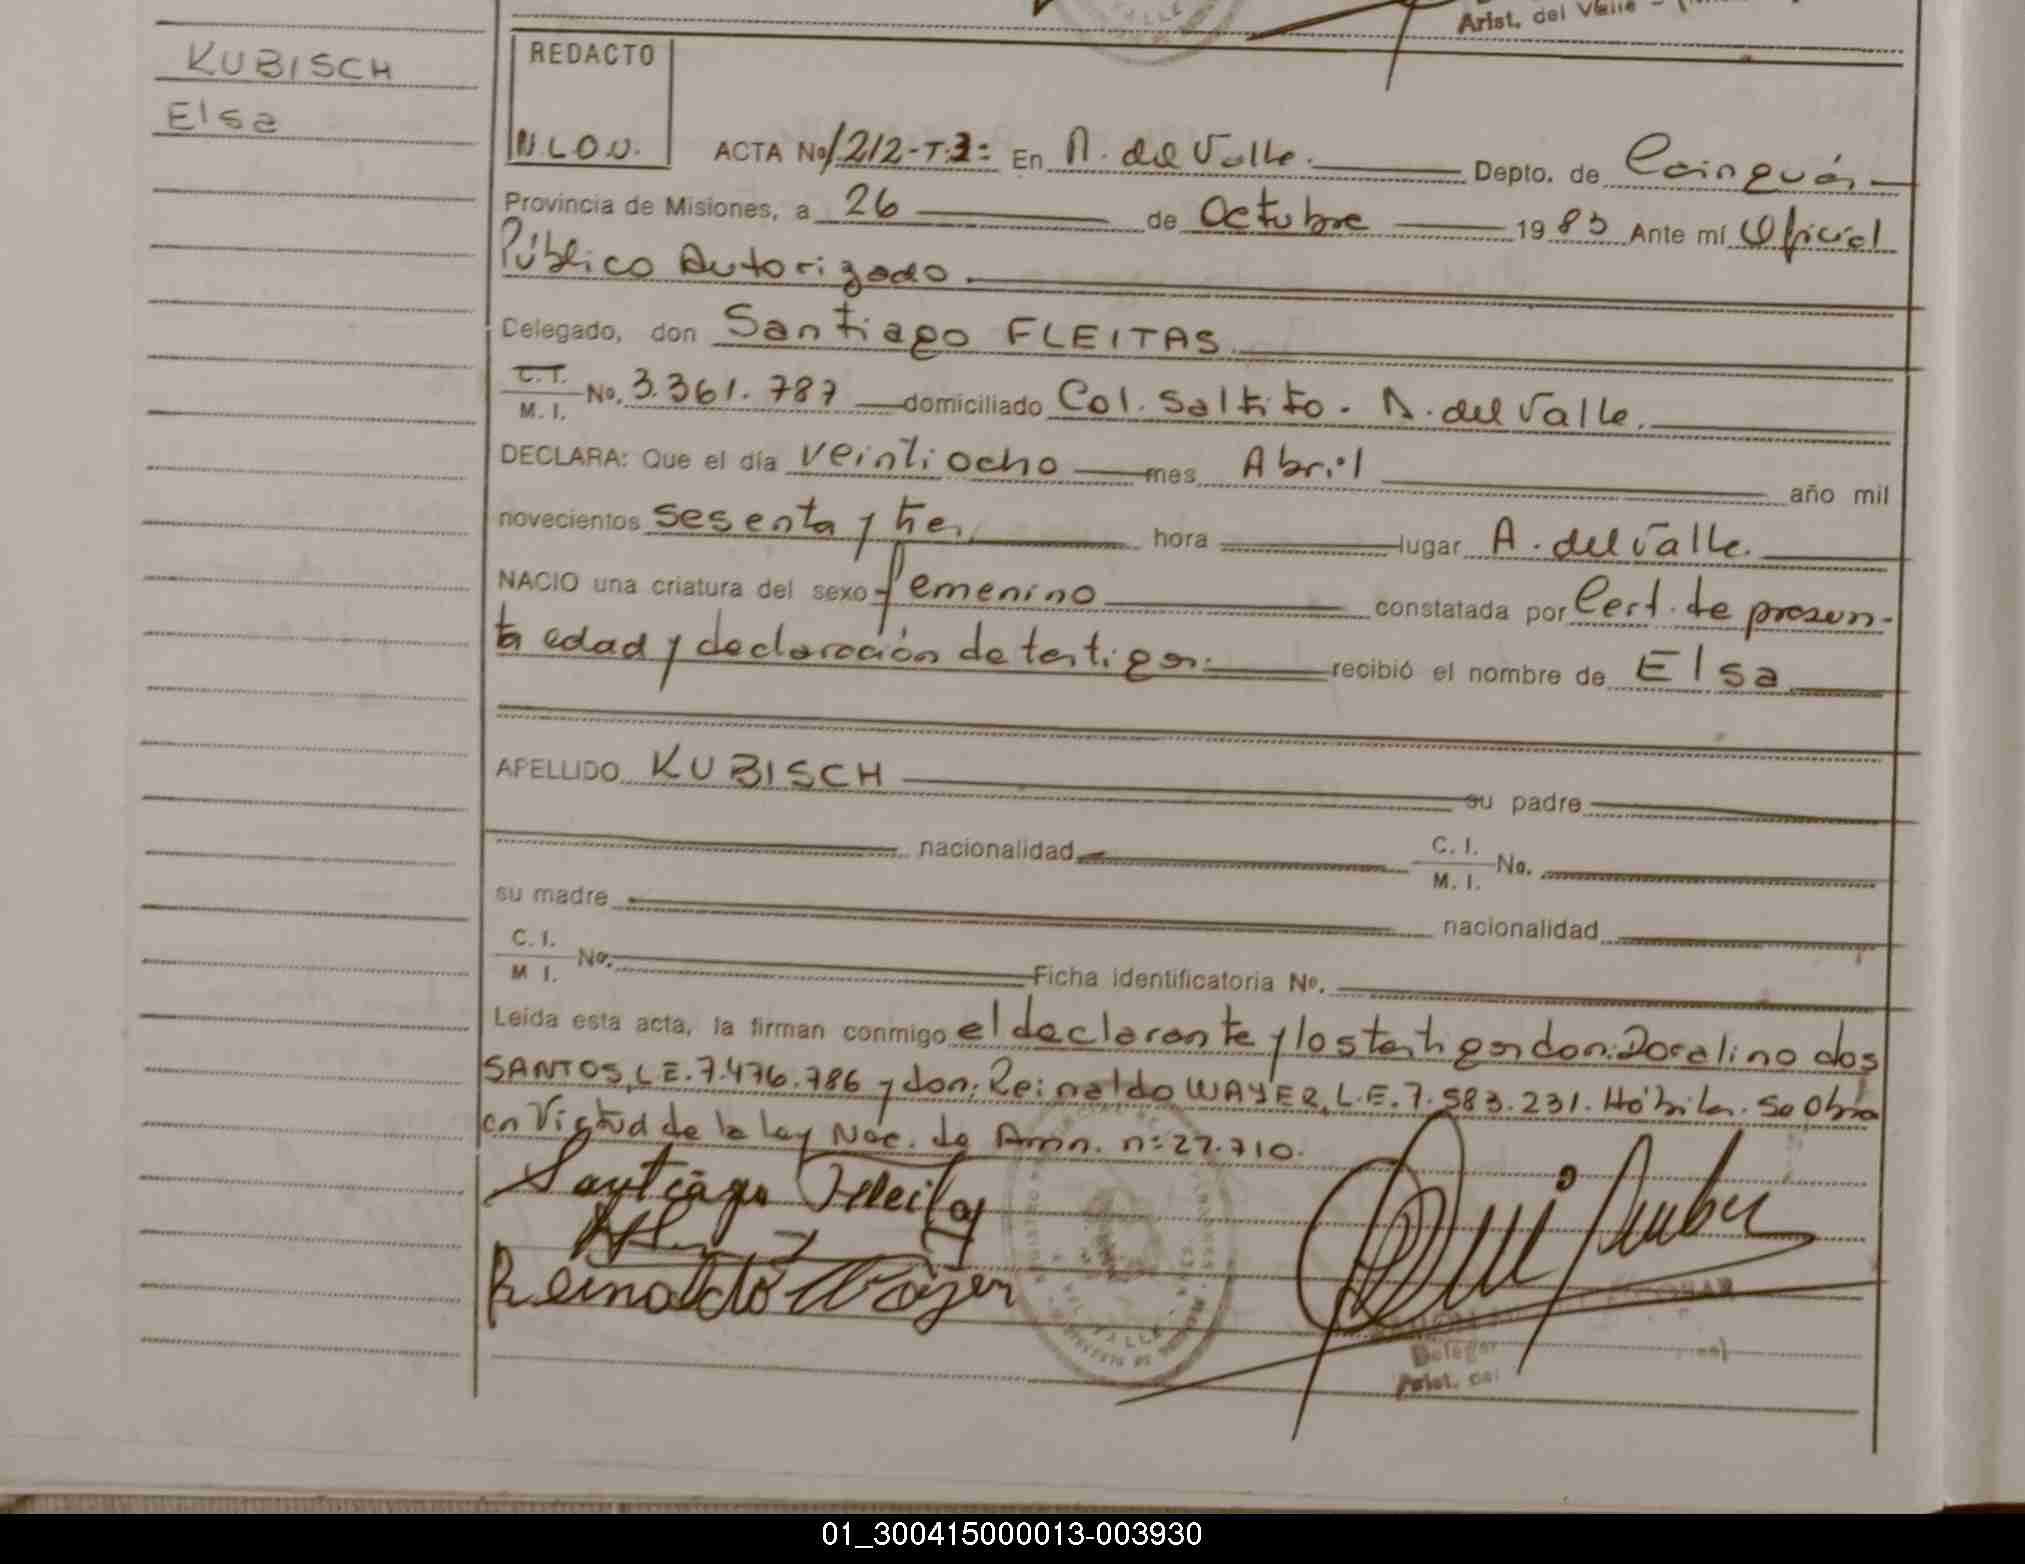 Arist. del Valle
KUBISCH
Elsa
REDACTO
N.L.O.U.
ACTA No 1212-T.3= En A. del Valle. Depto. de Cainguás
Provincia de Misiones, a 26 de Octubre 1983 Ante mí Oficial
Público Autorizado
Delegado, don Santiago FLEITAS
C.I. M. I. No. 3.361.787 domiciliado Col. Saltito. A. del Valle.
DECLARA: Que el día veintiocho mes Abril año mil
novecientos sesenta y tres hora lugar A. del Valle.
NACIO una criatura del sexo femenino constatada por Cert. de presun-
ta edad y declaración de testigos. recibió el nombre de Elsa
APELLIDO KUBISCH su padre
nacionalidad C. I. M. I. No.
su madre nacionalidad
C. I. M I. No. Ficha identificatoria No.
Leída esta acta, la firman conmigo el declarante y los testigos don: Doralino dos
SANTOS, L.E. 7.476.786 y don: Reinaldo WAYER, L.E. 7.583.231. Hábiles. Se Obra
en Virtud de la Ley Nac. de Amn. n= 22.710.
Santiago Fleitas
Reinaldo Wayer
VALLE
Arist. del
01_300415000013-003930